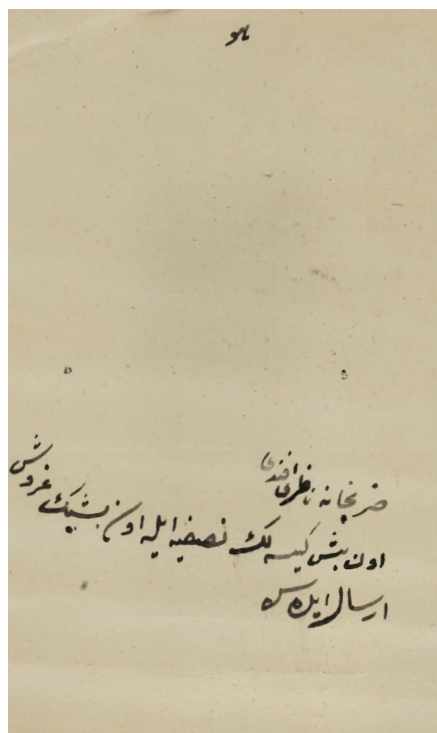 ضربخانه ناظرى افندى
اون بش كيسه لك نصفيه ايله اون بشبيك غروش
ارسال ايده سن